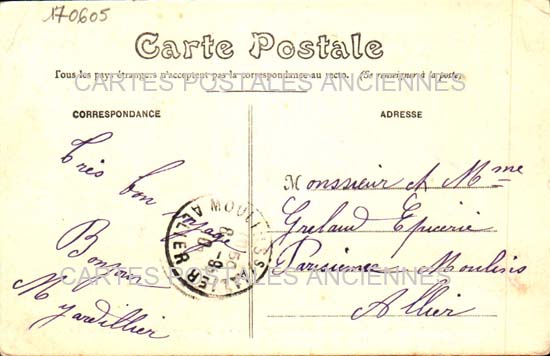 170605
Carte Postale
Tous les pays étrangers n'acceptent pas la correspondance au recto. (Se renseigner à la poste)
CARTES POSTALES ANCIENNES
CORRESPONDANCE
ADRESSE
Très
bon voyage
Bonjour
M Jardillier
Monssieur & Mme
Greland Epicerie
Parisienne Moulins
Allier
MOULINS S ALLIER
ALLIER
CARTES POSTALES ANCIENNES